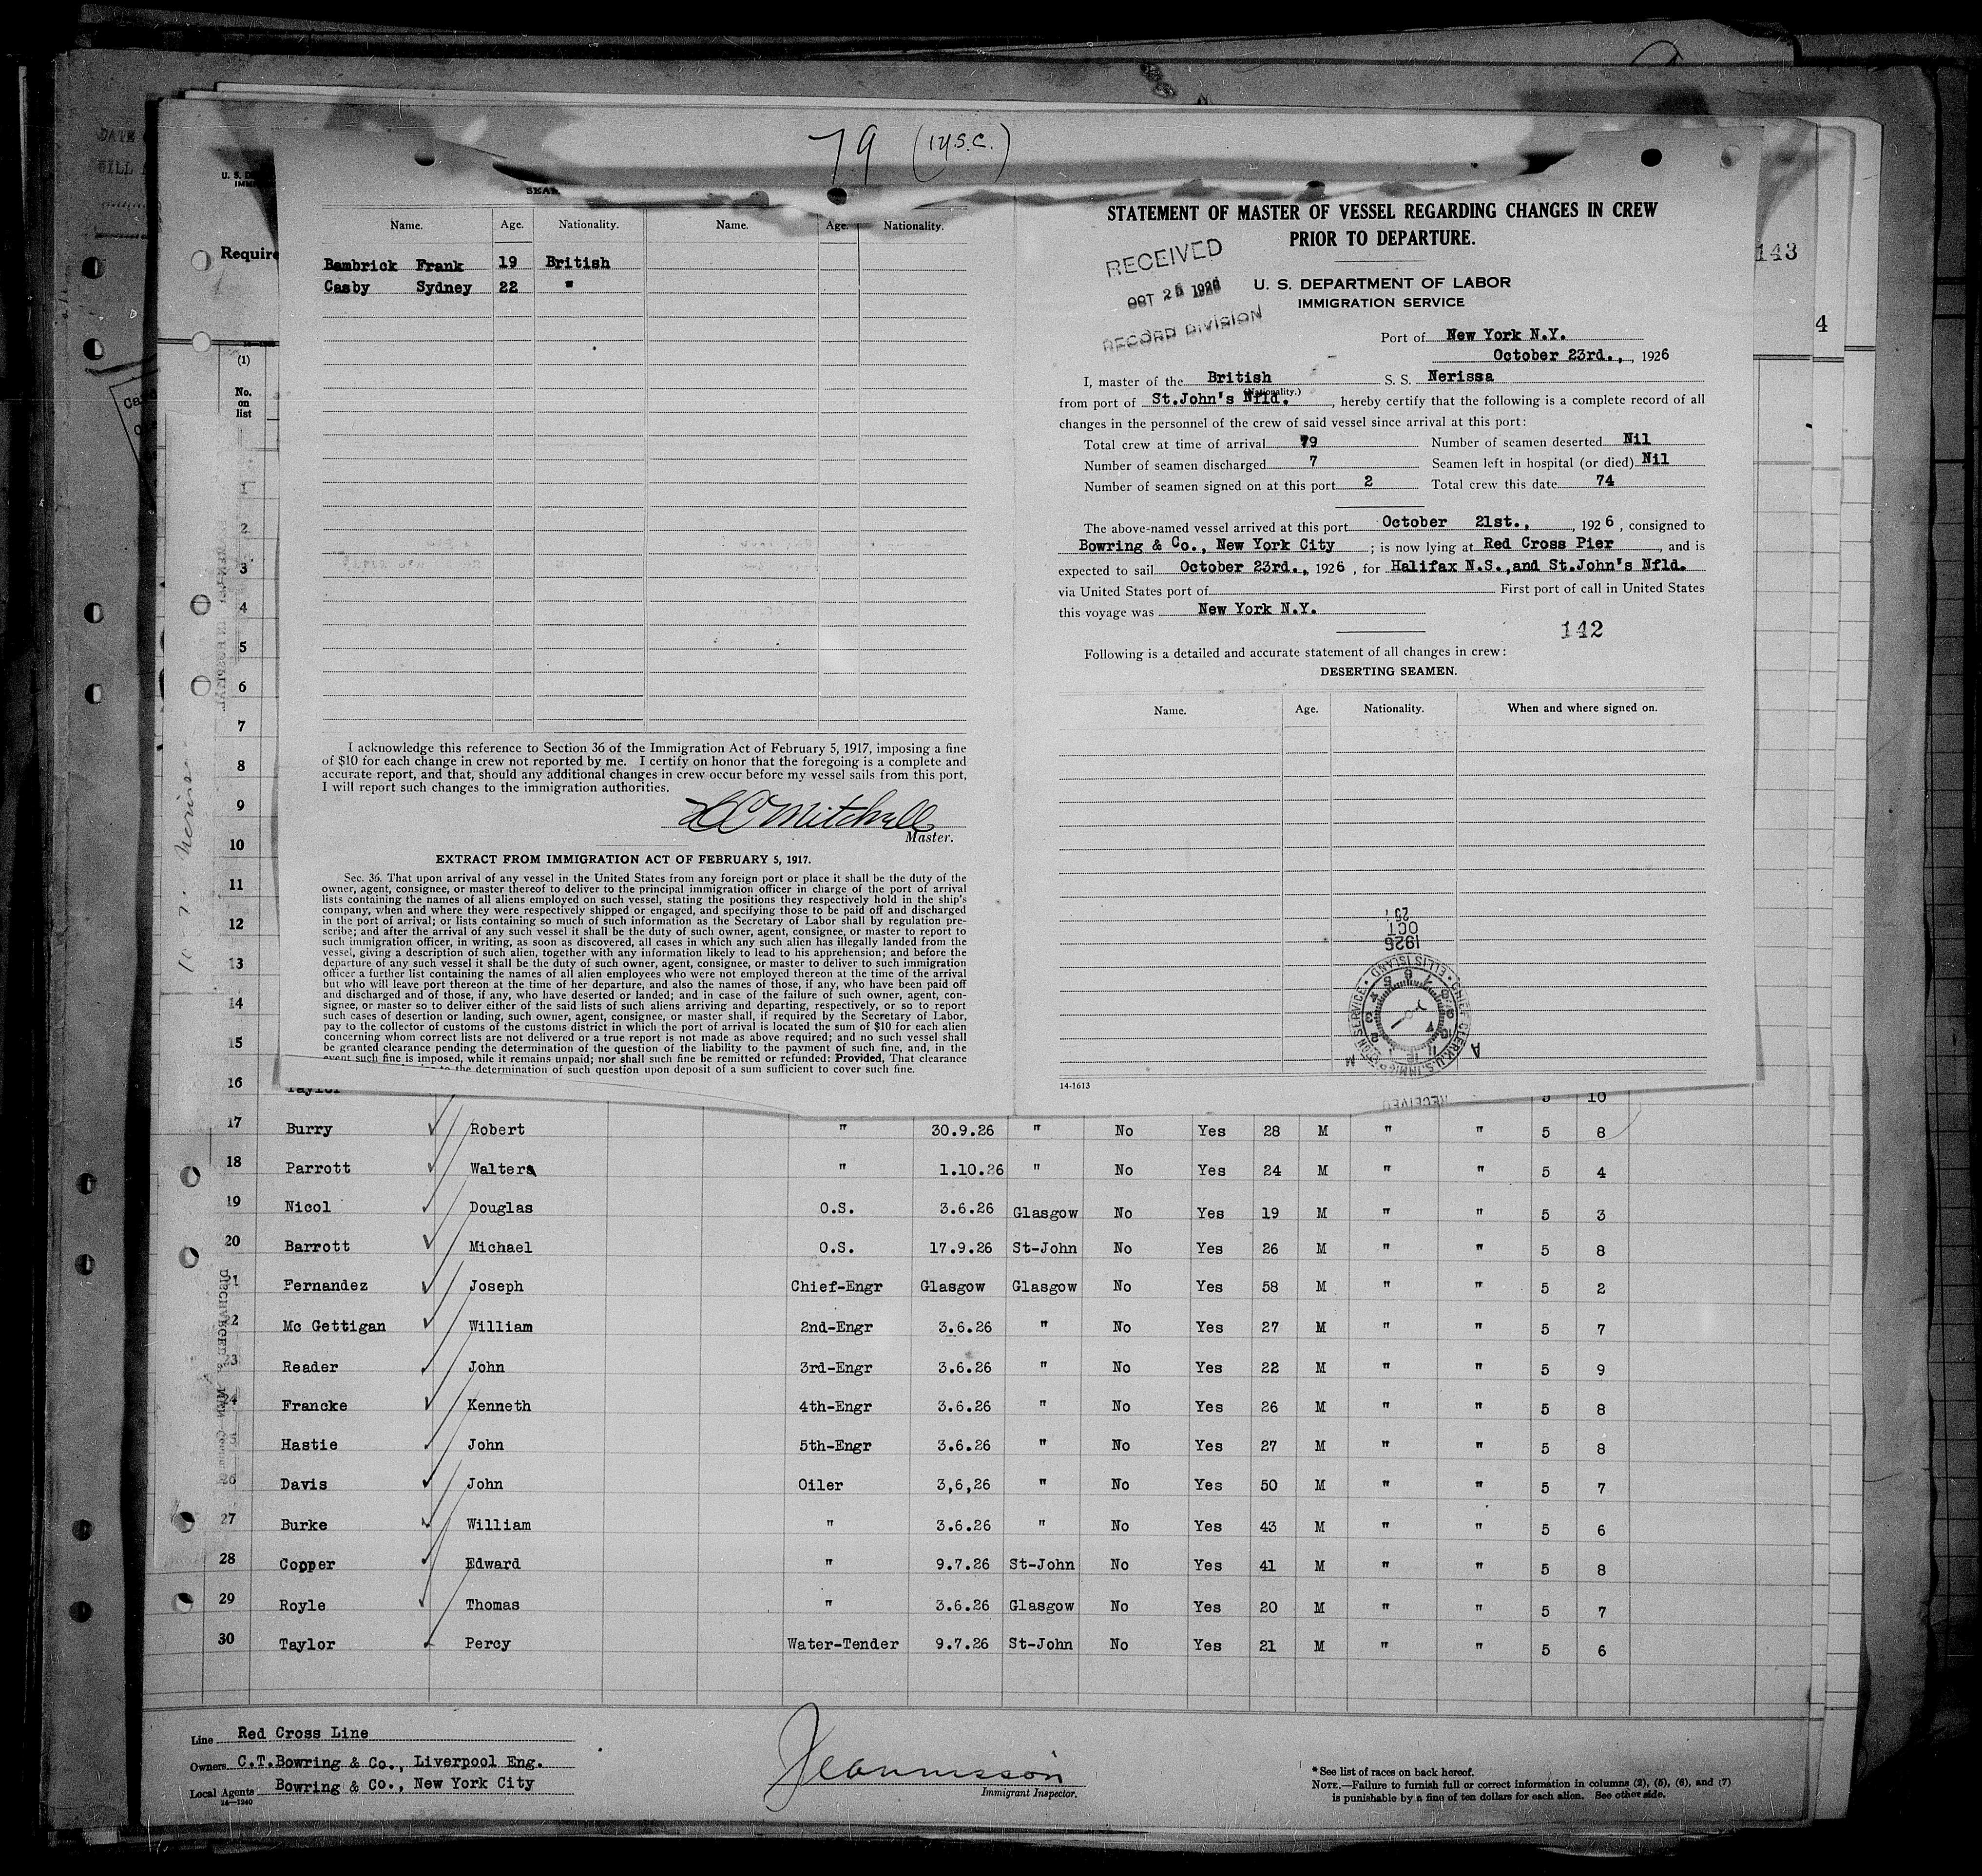 79 (14 S.C.)
DATE
Name. Age. Nationality. Name. Age. Nationality.
Bambrick Frank 19 British
Casby Sydney 22 "
I acknowledge this reference to Section 36 of the Immigration Act of February 5, 1917, imposing a fine
of $10 for each change in crew not reported by me. I certify on honor that the foregoing is a complete and
accurate report, and that, should any additional changes in crew occur before my vessel sails from this port,
I will report such changes to the immigration authorities.
Mitchell
Master.
EXTRACT FROM IMMIGRATION ACT OF FEBRUARY 5, 1917.
Sec. 36. That upon arrival of any vessel in the United States from any foreign port or place it shall be the duty of the
owner, agent, consignee, or master thereof to deliver to the principal immigration officer in charge of the port of arrival
lists containing the names of all aliens employed on such vessel, stating the positions they respectively hold in the ship's
company, when and where they were respectively shipped or engaged, and specifying those to be paid off and discharged
in the port of arrival; or lists containing so much of such information as the Secretary of Labor shall by regulation pre-
scribe; and after the arrival of any such vessel it shall be the duty of such owner, agent, consignee, or master to report to
such immigration officer, in writing, as soon as discovered, all cases in which any such alien has illegally landed from the
vessel, giving a description of such alien, together with any information likely to lead to his apprehension; and before the
departure of any such vessel it shall be the duty of such owner, agent, consignee, or master to deliver to such immigration
officer a further list containing the names of all alien employees who were not employed thereon at the time of the arrival
but who will leave port thereon at the time of her departure, and also the names of those, if any, who have been paid off
and discharged and of those, if any, who have deserted or landed; and in case of the failure of such owner, agent, con-
signee, or master so to deliver either of the said lists of such aliens arriving and departing, respectively, or so to report
such cases of desertion or landing, such owner, agent, consignee, or master shall, if required by the Secretary of Labor,
pay to the collector of customs of the customs district in which the port of arrival is located the sum of $10 for each alien
concerning whom correct lists are not delivered or a true report is not made as above required; and no such vessel shall
be granted clearance pending the determination of the question of the liability to the payment of such fine, and, in the
event such fine is imposed, while it remains unpaid; nor shall such fine be remitted or refunded: Provided, That clearance
the determination of such question upon deposit of a sum sufficient to cover such fine.
STATEMENT OF MASTER OF VESSEL REGARDING CHANGES IN CREW
PRIOR TO DEPARTURE.
RECEIVED
OCT 25 1926
RECORD DIVISION
U. S. DEPARTMENT OF LABOR
IMMIGRATION SERVICE
Port of New York N.Y.
October 23rd., , 1926
I, master of the British S. S. Nerissa
(Nationality.)
from port of St.John's Nfld. , hereby certify that the following is a complete record of all
changes in the personnel of the crew of said vessel since arrival at this port:
Total crew at time of arrival 79 Number of seamen deserted Nil
Number of seamen discharged 7 Seamen left in hospital (or died) Nil
Number of seamen signed on at this port 2 Total crew this date 74
The above-named vessel arrived at this port October 21st., , 1926 , consigned to
Bowring & Co., New York City ; is now lying at Red Cross Pier , and is
expected to sail October 23rd., 1926 , for Halifax N.S.,and St.John's Nfld.
via United States port of First port of call in United States
this voyage was New York N.Y.
142
Following is a detailed and accurate statement of all changes in crew:
DESERTING SEAMEN.
Name. Age. Nationality. When and where signed on.
25
OCT
1926
CHIEF CLERK, U.S. IMMIGRATION SERVICE • ELLIS ISLAND •
14-1613
RECEIVED
143
4
Require
(1)
No.
on
list
1
2
3
4
5
6
7
8
9
10
11
12
13
14
15
16 Taylor 5 10
17 Burry Robert " 30.9.26 " No Yes 28 M " " 5 8
18 Parrott Walters " 1.10.26 " No Yes 24 M " " 5 4
19 Nicol Douglas O.S. 3.6.26 Glasgow No Yes 19 M " " 5 3
20 Barrott Michael O.S. 17.9.26 St-John No Yes 26 M " " 5 8
21 Fernandez Joseph Chief-Engr Glasgow Glasgow No Yes 58 M " " 5 2
22 Mc Gettigan William 2nd-Engr 3.6.26 " No Yes 27 M " " 5 7
23 Reader John 3rd-Engr 3.6.26 " No Yes 22 M " " 5 9
24 Francke Kenneth 4th-Engr 3.6.26 " No Yes 26 M " " 5 8
25 Hastie John 5th-Engr 3.6.26 " No Yes 27 M " " 5 8
26 Davis John Oiler 3,6,26 " No Yes 50 M " " 5 7
27 Burke William " 3.6.26 " No Yes 43 M " " 5 6
28 Copper Edward " 9.7.26 St-John No Yes 41 M " " 5 8
29 Royle Thomas " 3.6.26 Glasgow No Yes 20 M " " 5 7
30 Taylor Percy Water-Tender 9.7.26 St-John No Yes 21 M " " 5 6
Line Red Cross Line
Owners C.T.Bowring & Co., Liverpool Eng.
Local Agents Bowring & Co., New York City
14-1240
Immigrant Inspector.
* See list of races on back hereof.
NOTE.—Failure to furnish full or correct information in columns (2), (5), (6), and (7)
is punishable by a fine of ten dollars for each alien. See other side.